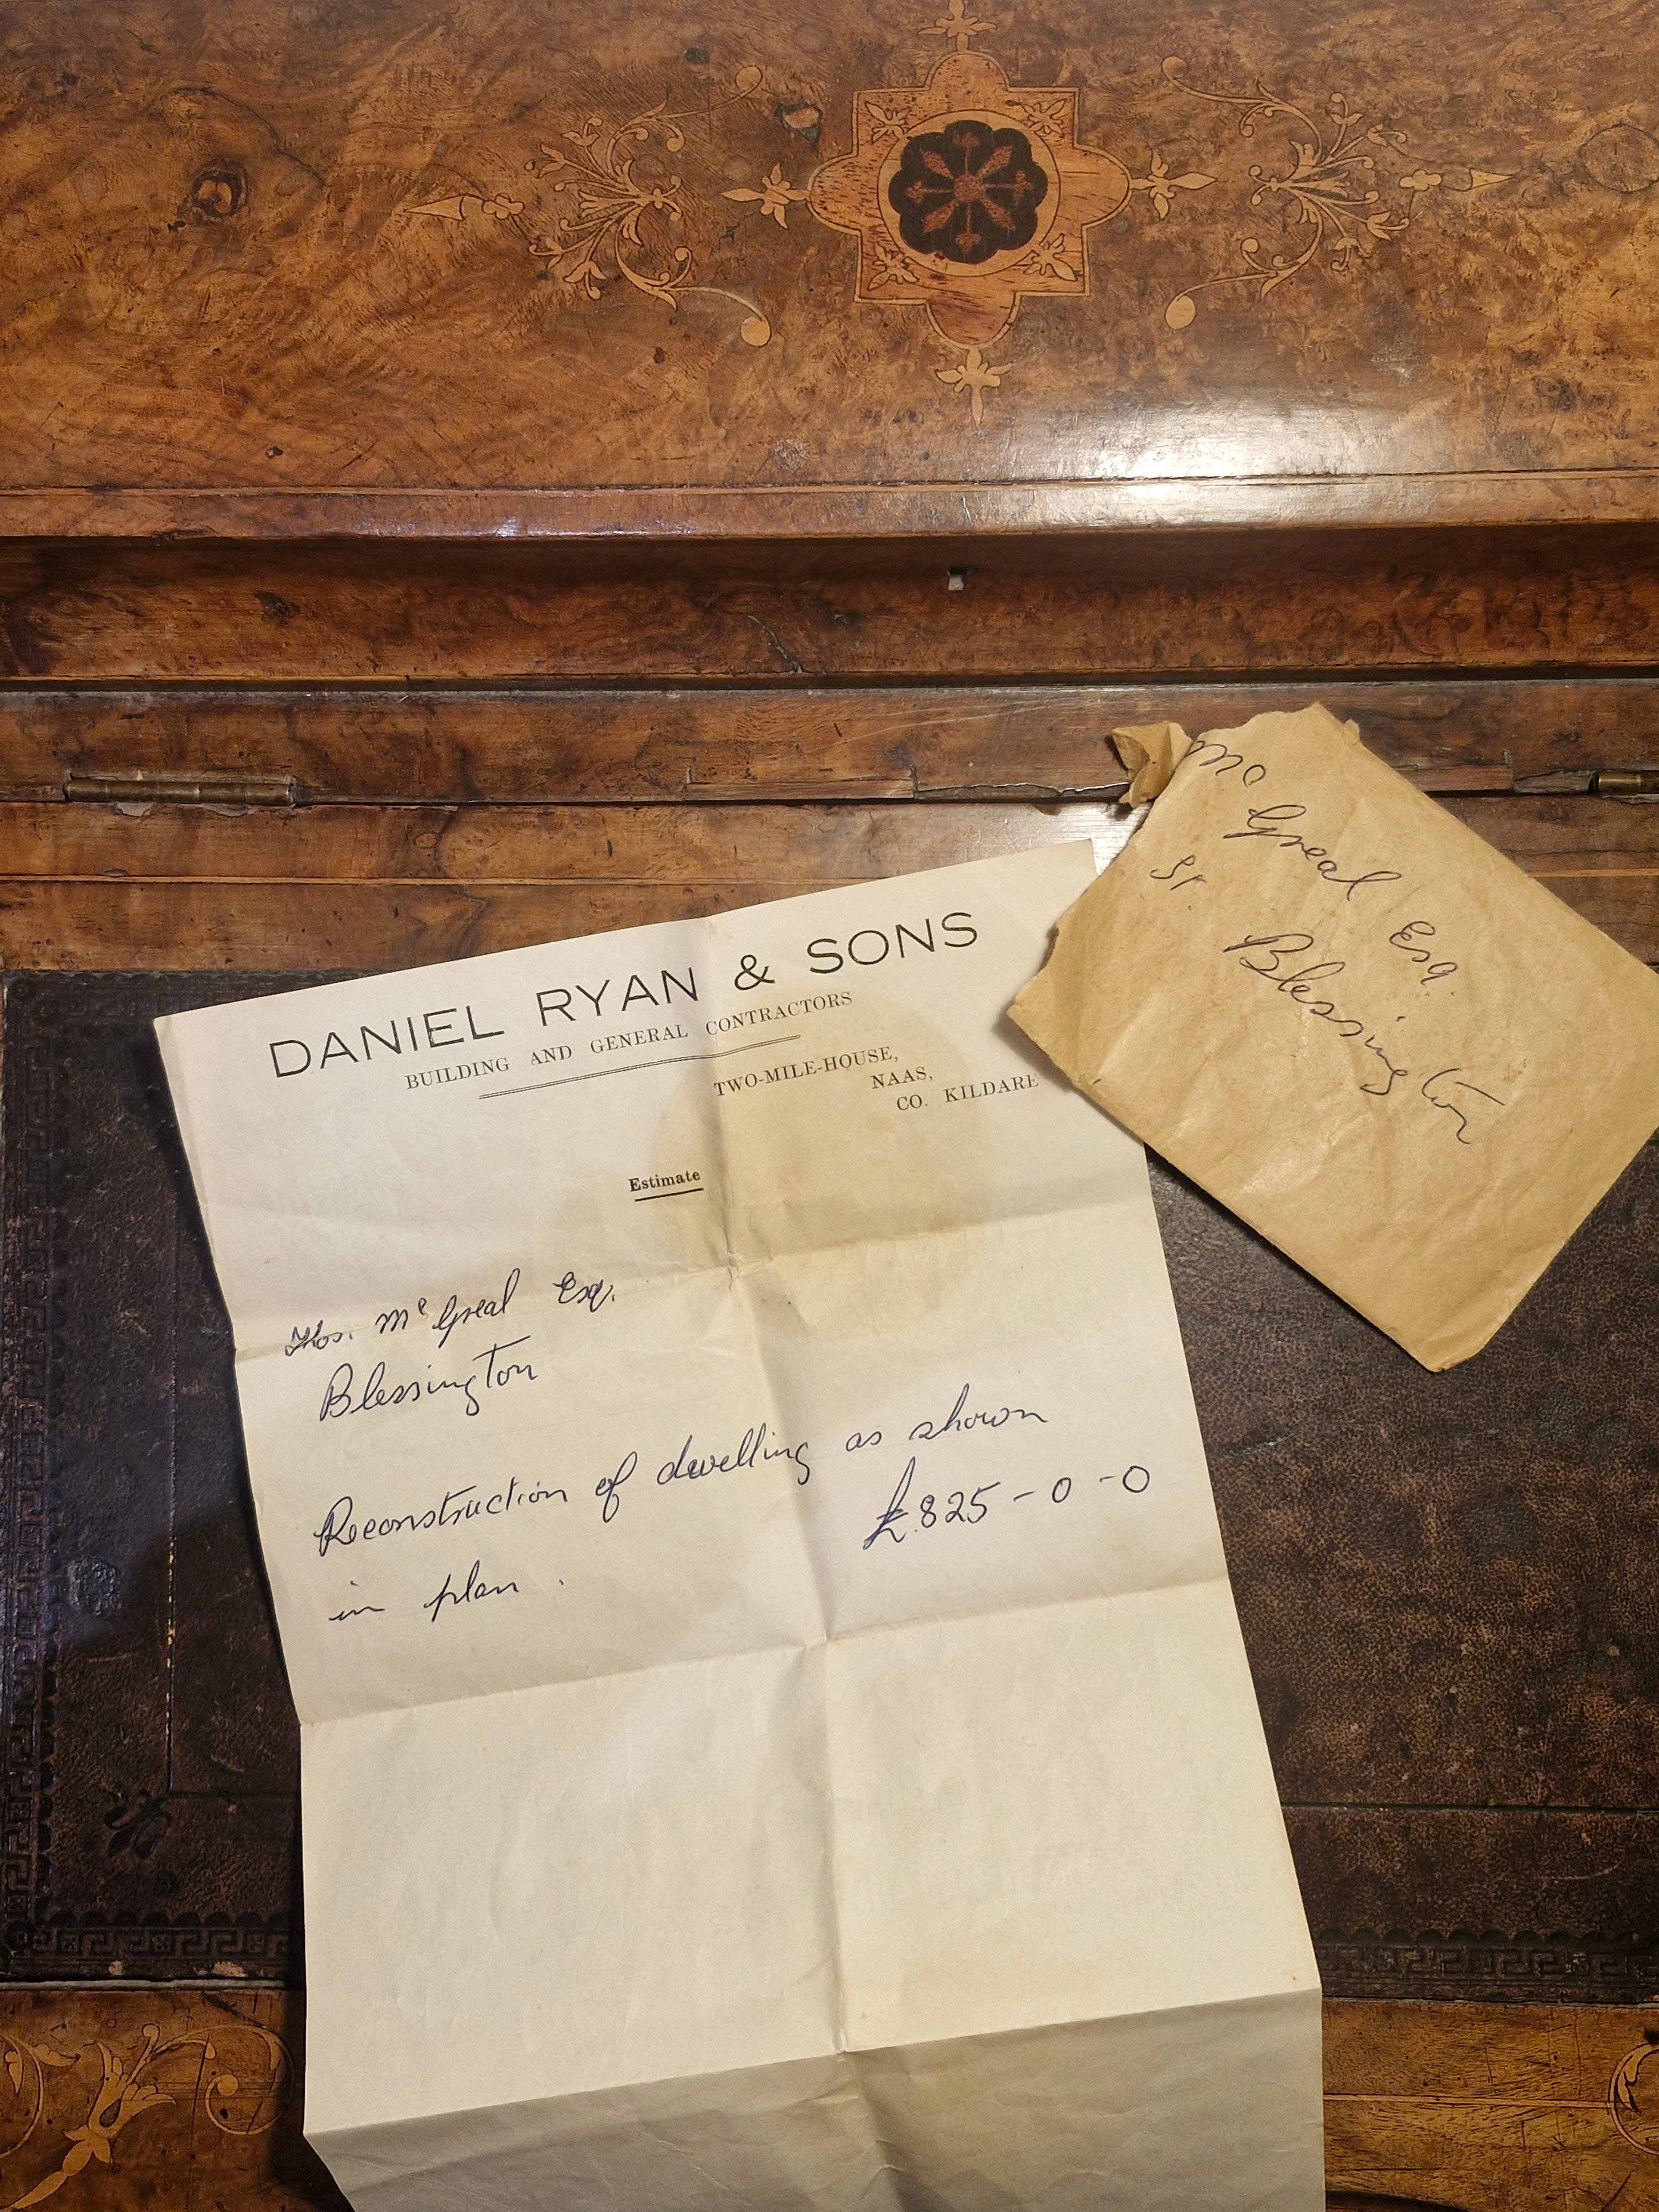 DANIEL RYAN & SONS
BUILDING AND GENERAL CONTRACTORS
TWO-MILE-HOUSE,
NAAS,
CO. KILDARE
Estimate
Thos. Mc Greal Esq.
Blessington
Reconstruction of dwelling as shown
£825-0-0
in plan.
Mc Greal Esq.
St.
Blessington